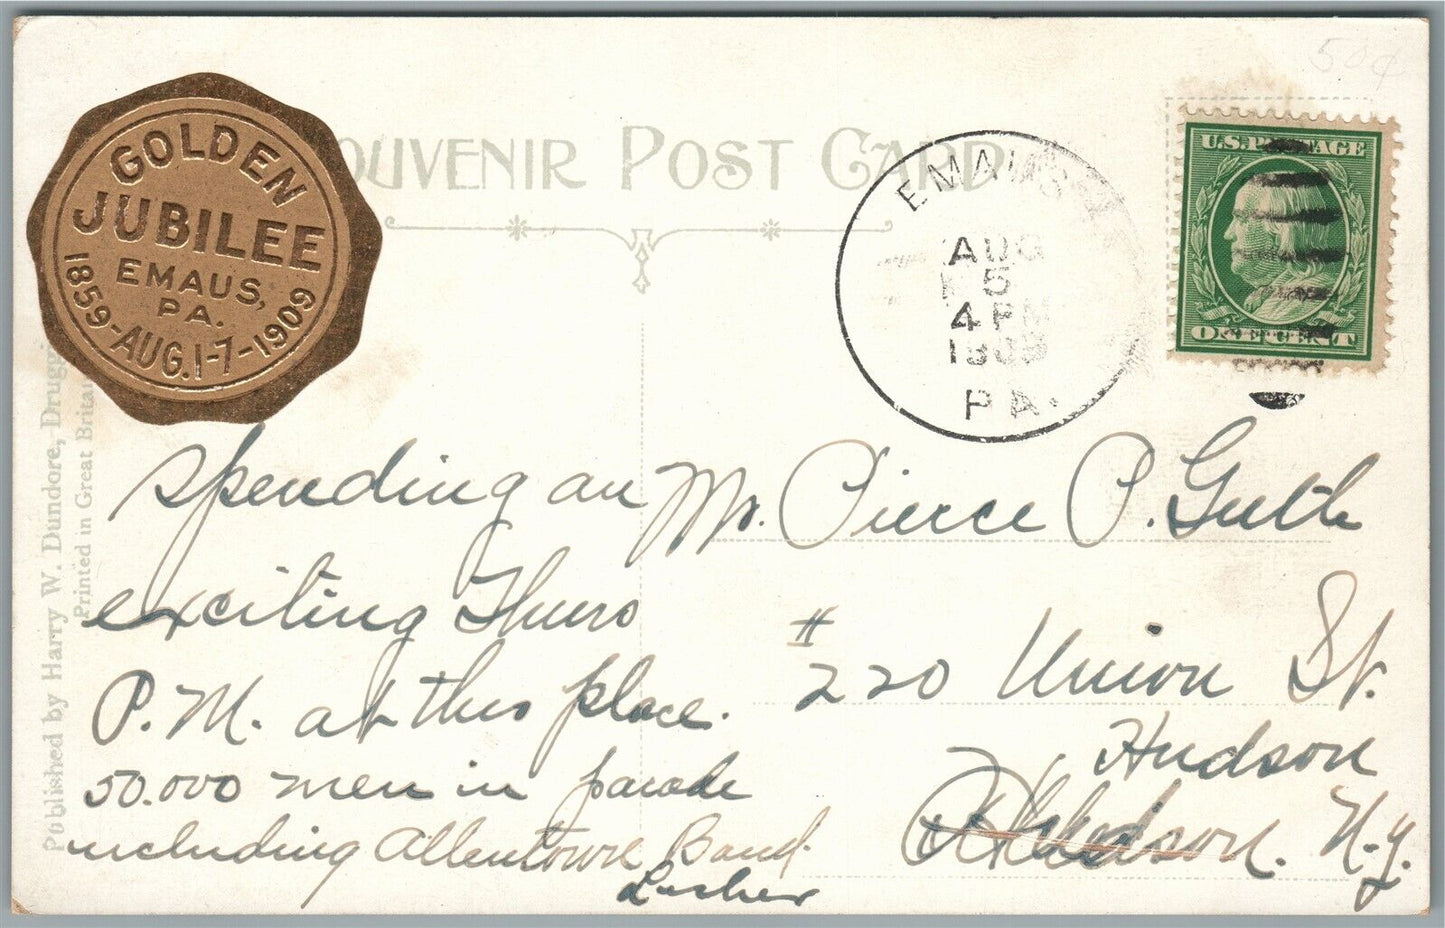 50¢
SOUVENIR POST CARD
GOLDEN
JUBILEE
EMAUS,
PA.
1859-AUG.1-7-1909
EMAUS
AUG
5
4 PM
1909
PA.
U.S. POSTAGE
ONE CENT
Published by Harry W. Dundore, Druggi
Printed in Great Britai
spending an
exciting Thurs
P.M. at this place.
50.000 men in parade
including Allentown Band.
Lesher
Mr. Pierce P. Guth
# 220 Union St.
Hudson
N.Y.